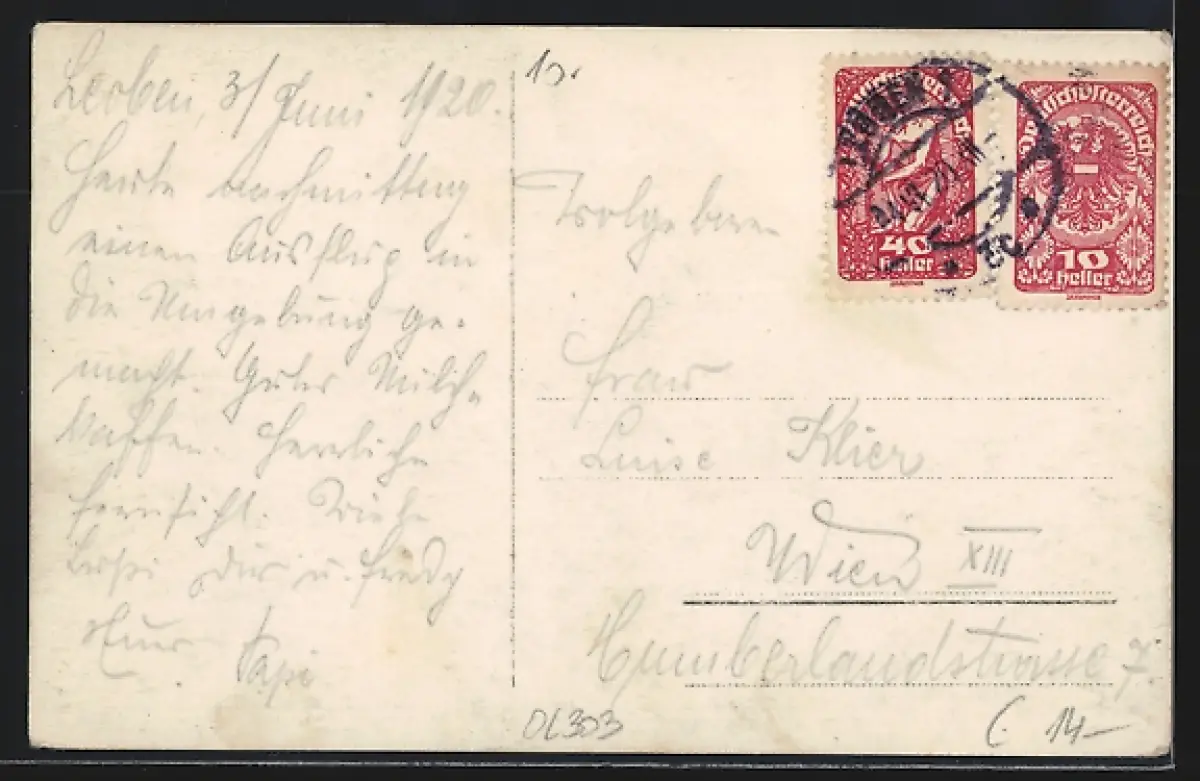 Leoben, 3/ Juni 1920.
Heute nachmittag
einen Ausflug in
die Umgebung ge-
macht. Guter Milch-
kaffee. Herrliche
Fernsicht. Viele
Bussi Dir u. Fredy
Euer Papi
Wohlgeboren
Frau
Luise Klier
Wien XIII
Cumberlandstrasse 7.
Deutschösterreich
40
Heller
Deutschösterreich
10
Heller
LEOBEN
06303
14-